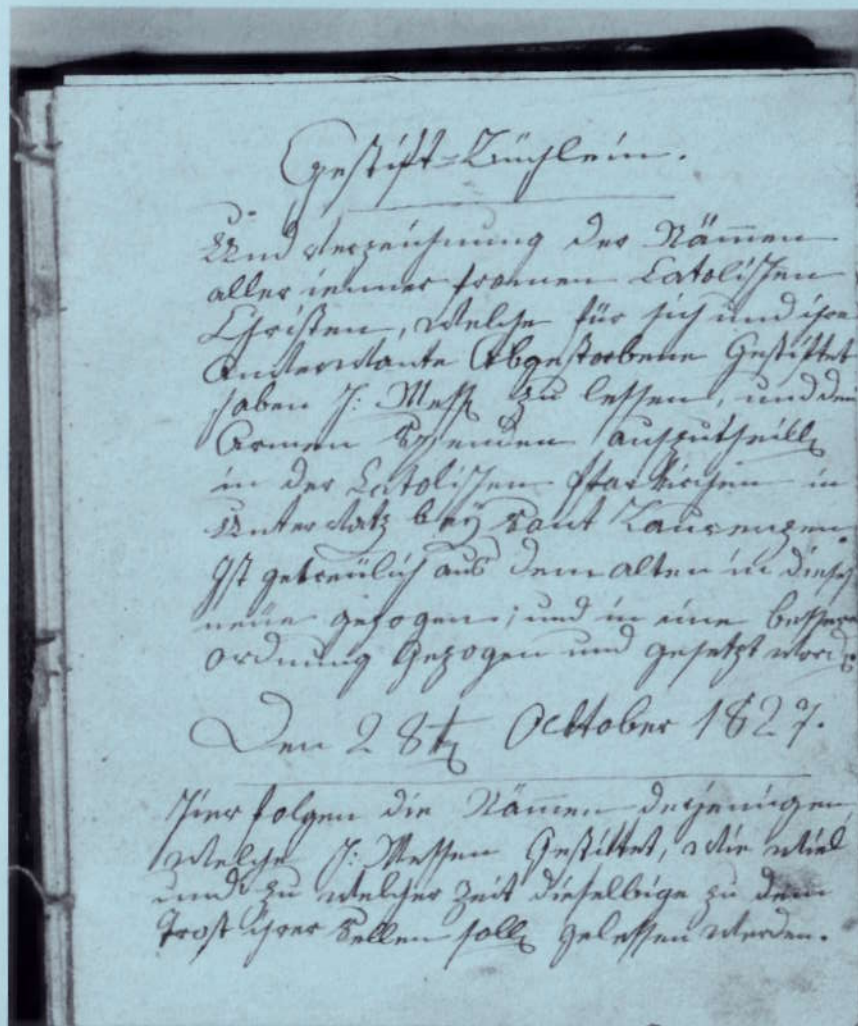 Gestift=Büchlein.
Und Verzeichnung der Nämen
aller ienner fromen Catolischen
Christen, welche für sich und ihre
Anverwante Abgestorbene Gestiftet
haben H: Mess zu lessen, und den
Armen Spenden auszutheill
in der Catolischen Pfarkirchen in
Untervatz bey Sant Laurenzen.
Ist getreülich aus dem alten in dieses
neüe gezogen; und in eine bessere
ordnung Gezogen und gesetzt word
Den 28t Ocktober 1827.
Hier folgen die Nämen derjenigen,
welche H: Messen Gestiftet, wie viel
und zu welcher Zeit dieselbige zu dem
Trost ihrer Sellen soll gelessen werden.